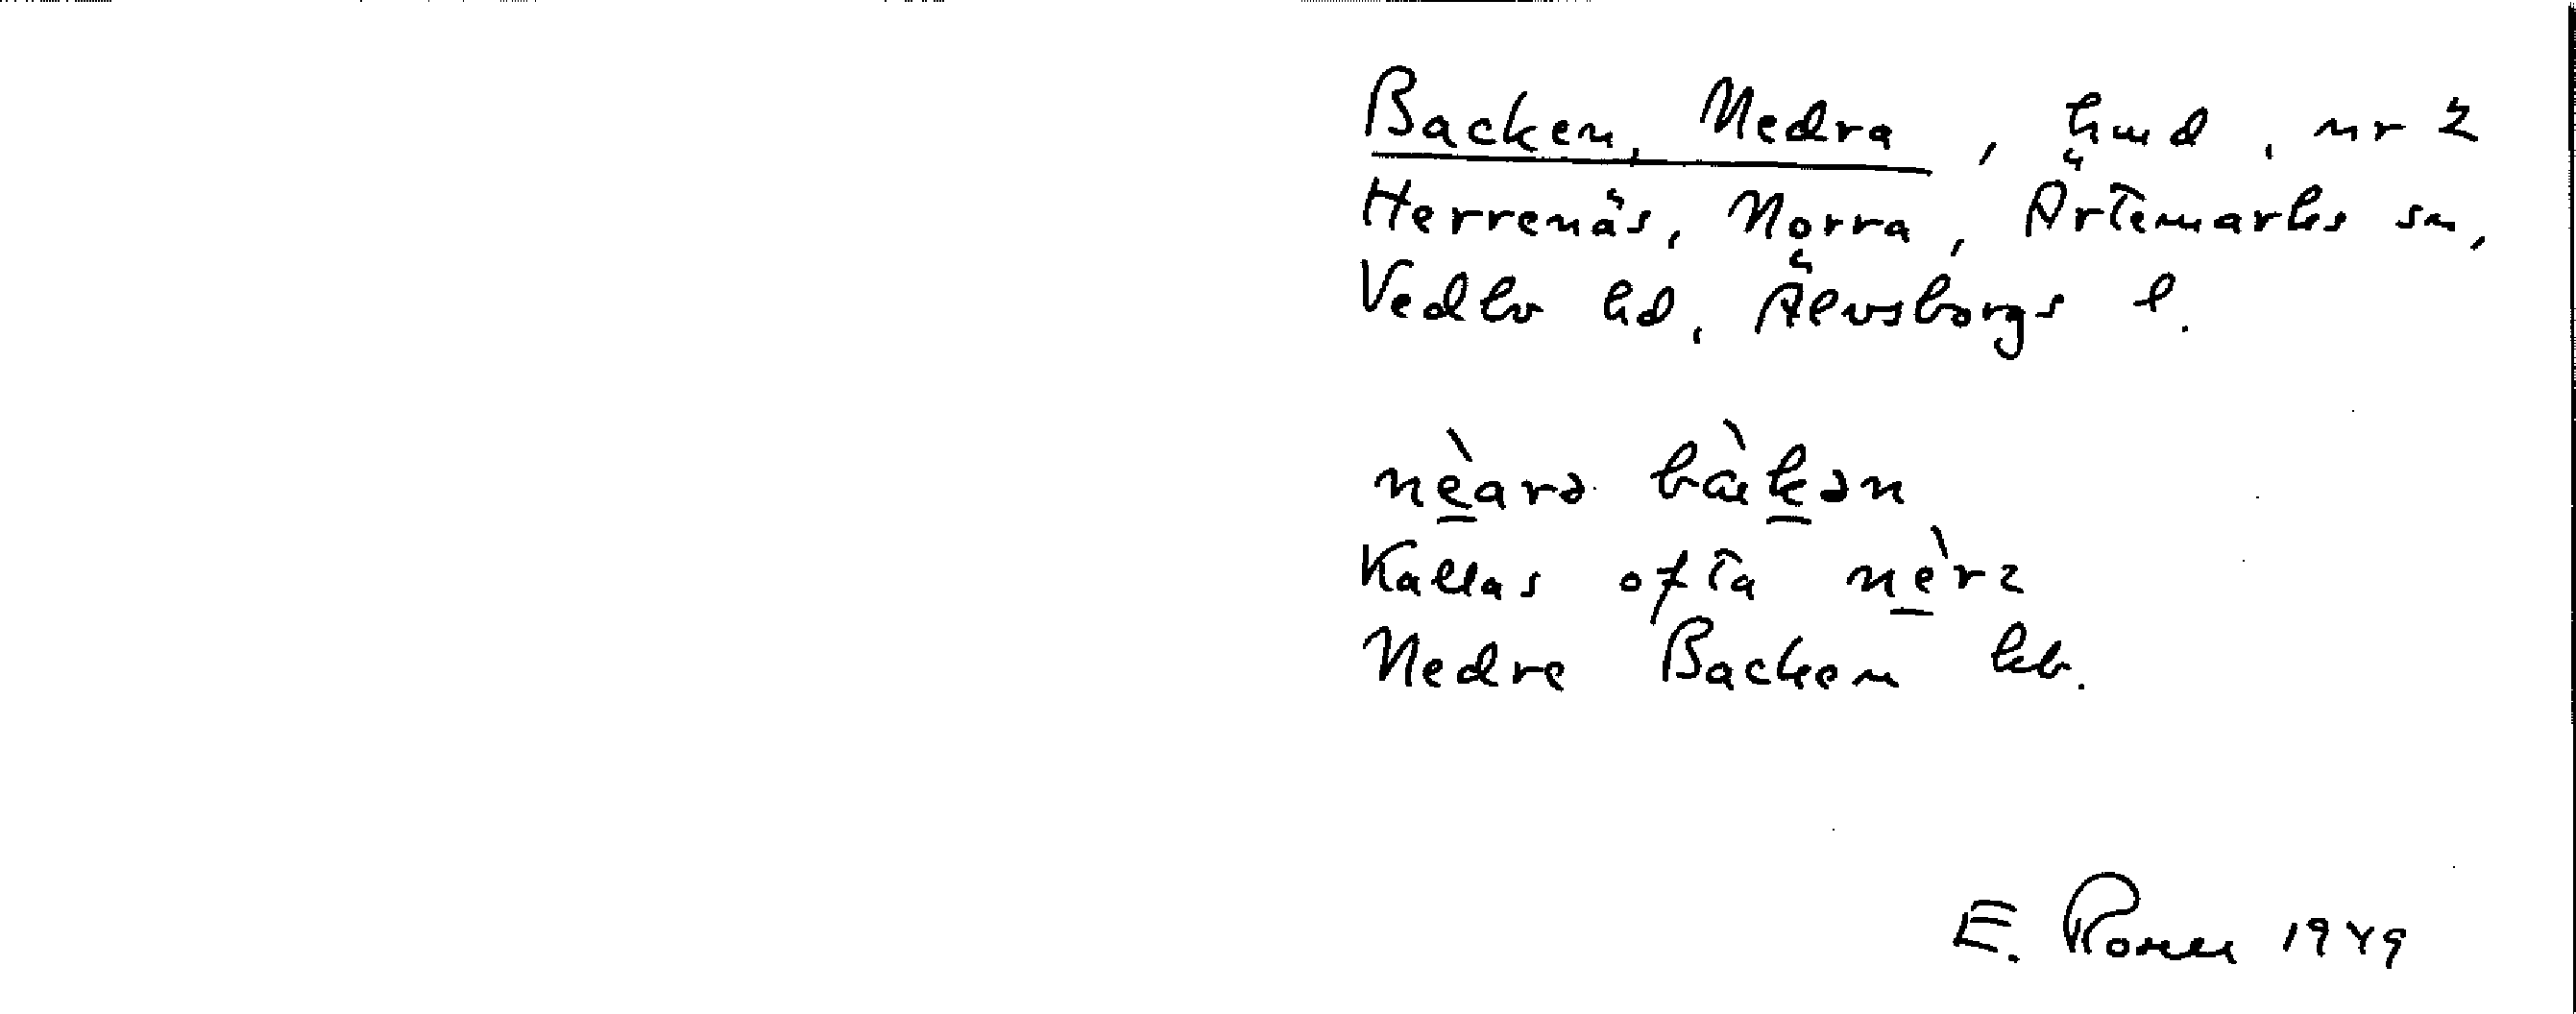 Backen, Nedra, hmd, nr 2
Herrenäs, Norra, Ärtemarks sn,
Vedbo hd, Älvsborgs l.
nèarə bàkən
Kallas ofta
Nedre Backen kb.
E. Rosell 1949